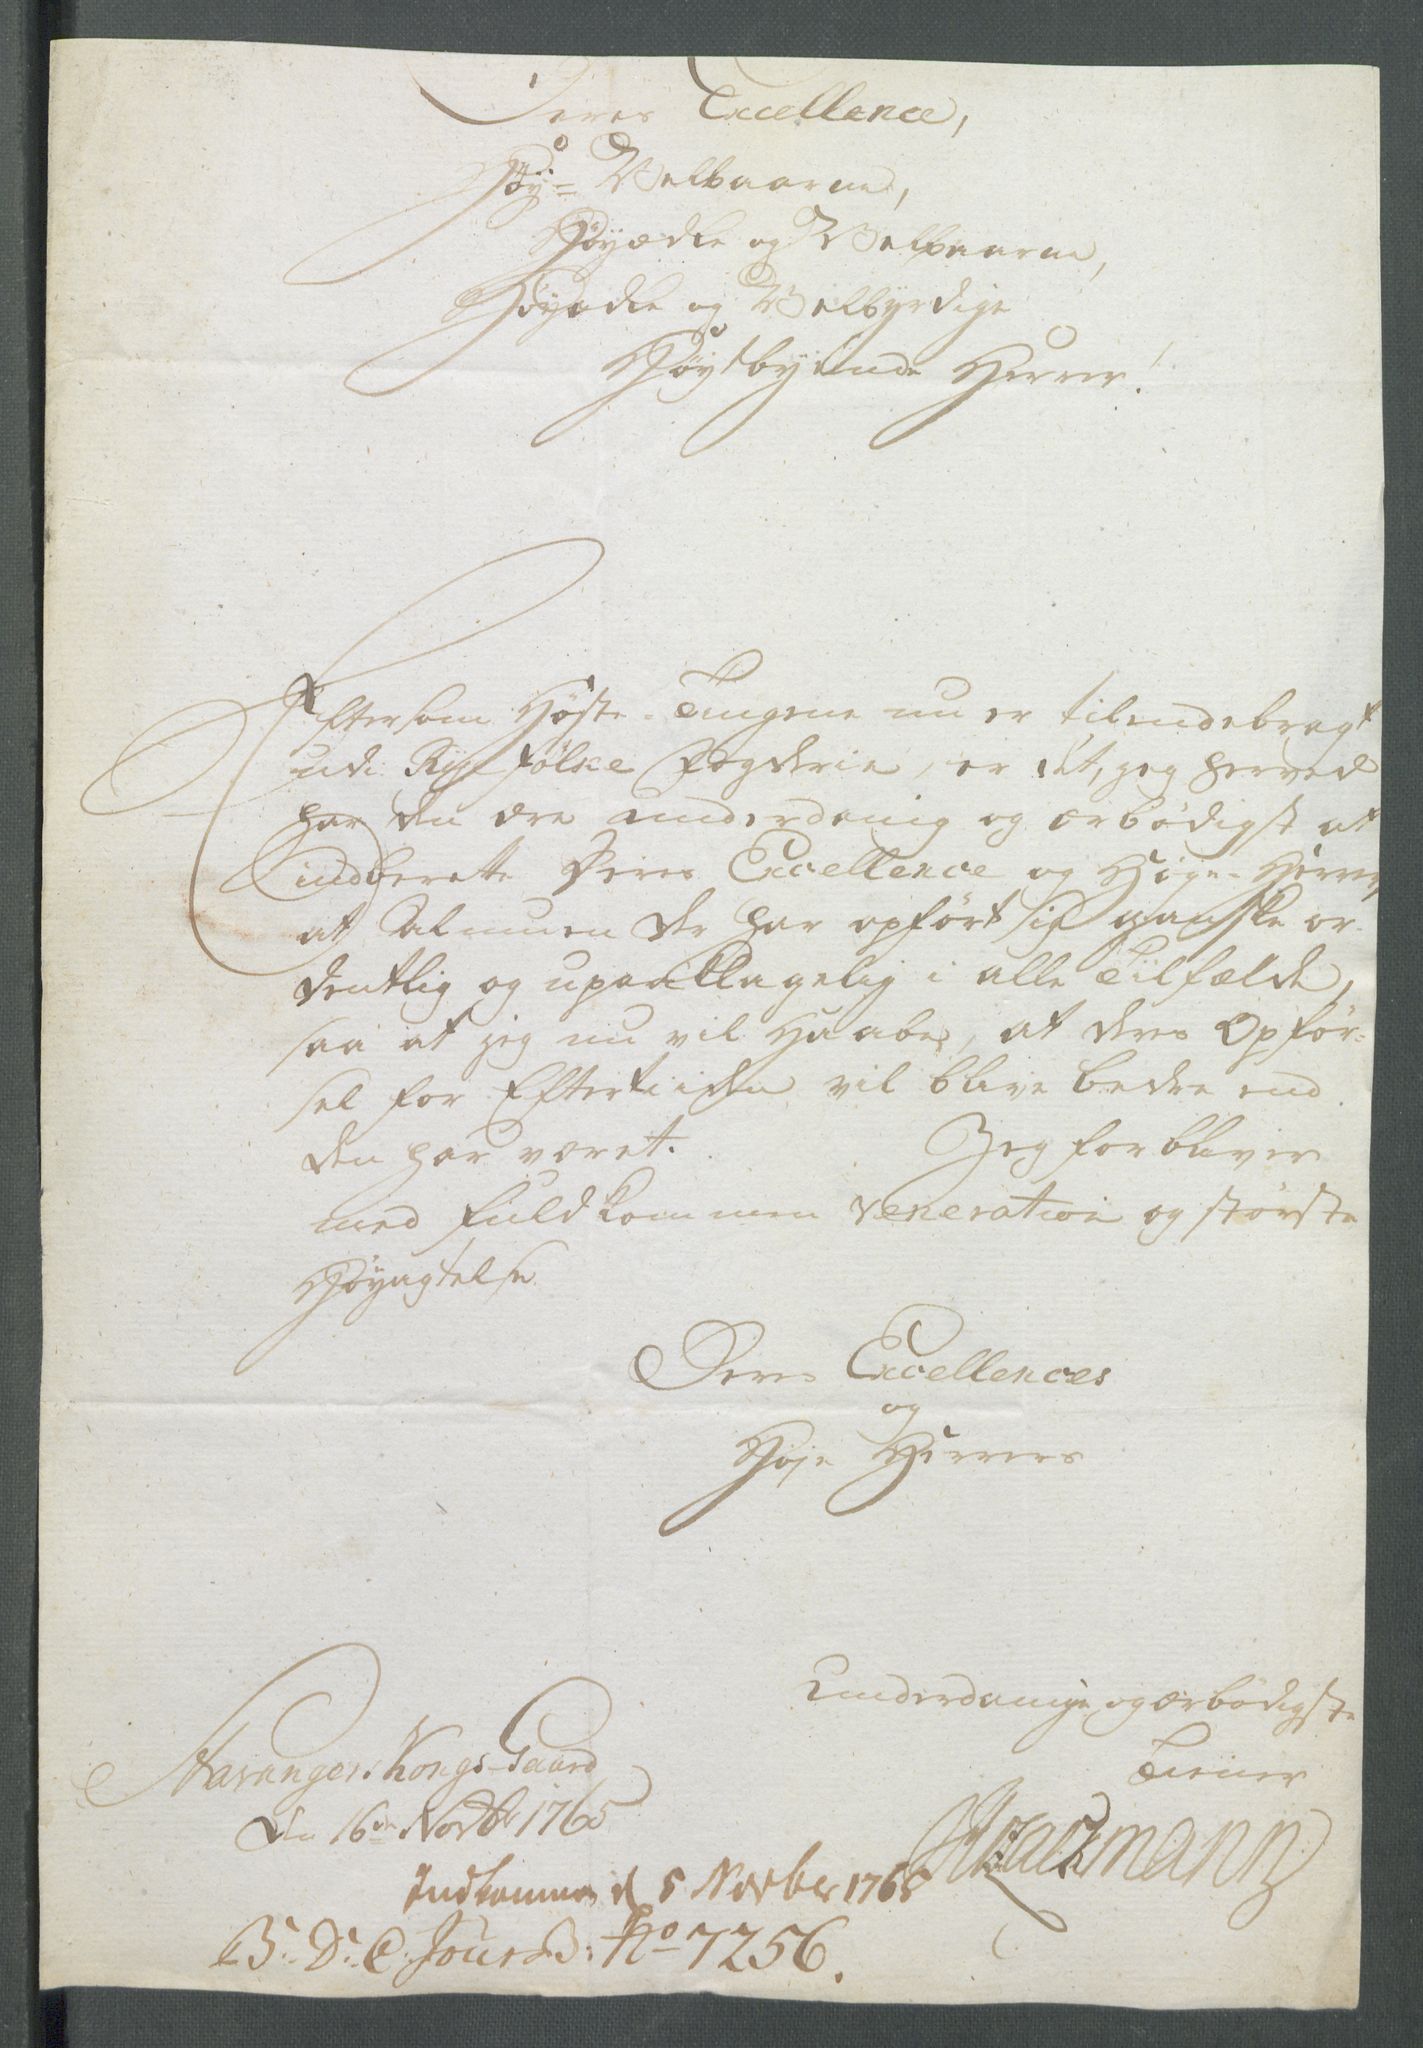 Deres Excellence,
Høy= Velbaarne,
Høyædle og Velbaarne,
Høyædle og Velbyrdige
Høystbydende Herrer!
Eftersom Høste-Tingene nu er tilendebragt
udi Ryefylke Fogderie, er det, jeg herved
har den ære underdanig og ærbødigst at
indberette Deres Excellence og Høye-Herrer,
at Almuen der har opført sig ganske or-
dentlig og upaaklagelig i alle Tilfælde,
saa at jeg nu vil Haabe, at deres Opför-
sel for Eftertiden vil blive bedre end
den har været. Jeg forbliver
med fuldkommen veneration og største
Høyagtelse
Deres Excellences
og
Høje Herrers
Underdanige og ærbødigste
Tiener
Stavanger Kongs-Gaard
den 16de Novbr 1765
Indkommen d 5 Novber 1765
B: D: C: Jour B: No 7256.